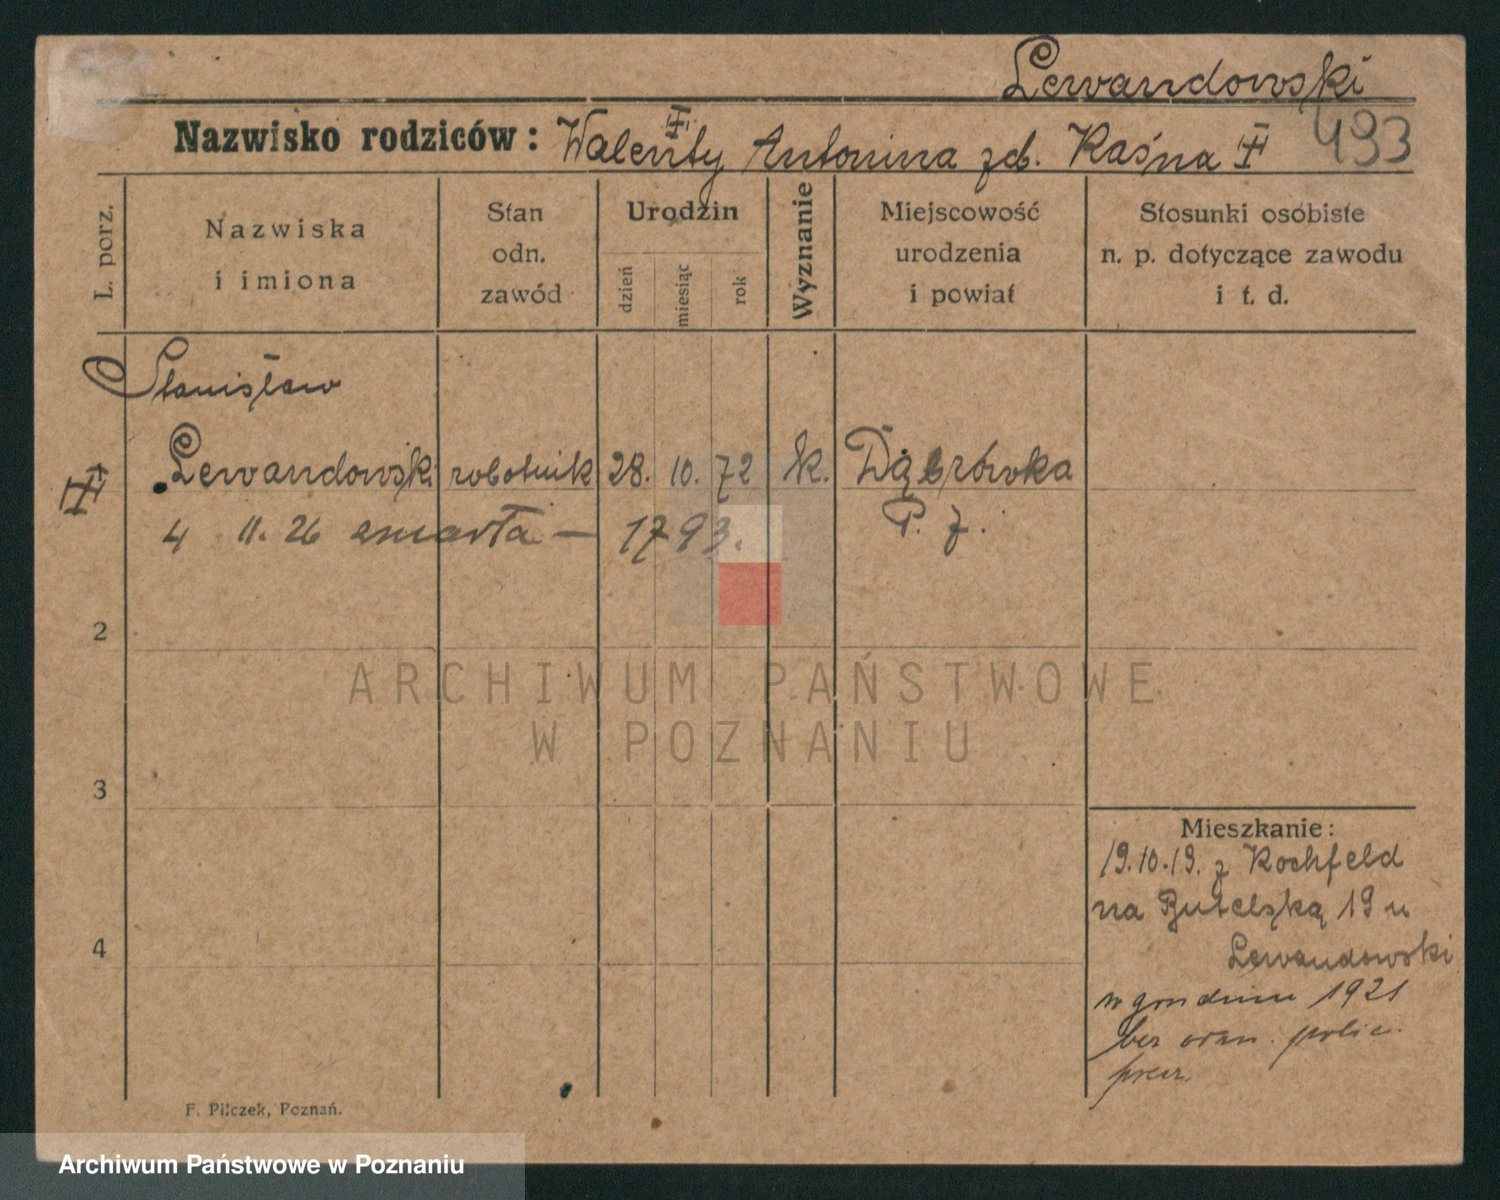 Lewandowski
Nazwisko rodziców: Walenty Antonina zd. Kaśna 493
L. porz.
Nazwiska
i imiona
Stan
odn.
zawód
Urodzin
dzień
miesiąc
rok
Wyznanie
Miejscowość
urodzenia
i powiat
Stosunki osobiste
n. p. dotyczące zawodu
i t. d.
Stanisław
Lewandowski robotnik 28. 10. 72 k. Dąbrówka
4 11. 26 zmarła — 1793. P. z.
2
ARCHIWUM PAŃSTWOWE
W POZNANIU
3
Mieszkanie:
19.10.19. z Kochfeld
na Butelską 19 u
4
Lewandowski
w grudniu 1921
bez polic.
F. Pilczek, Poznań.
Archiwum Państwowe w Poznaniu